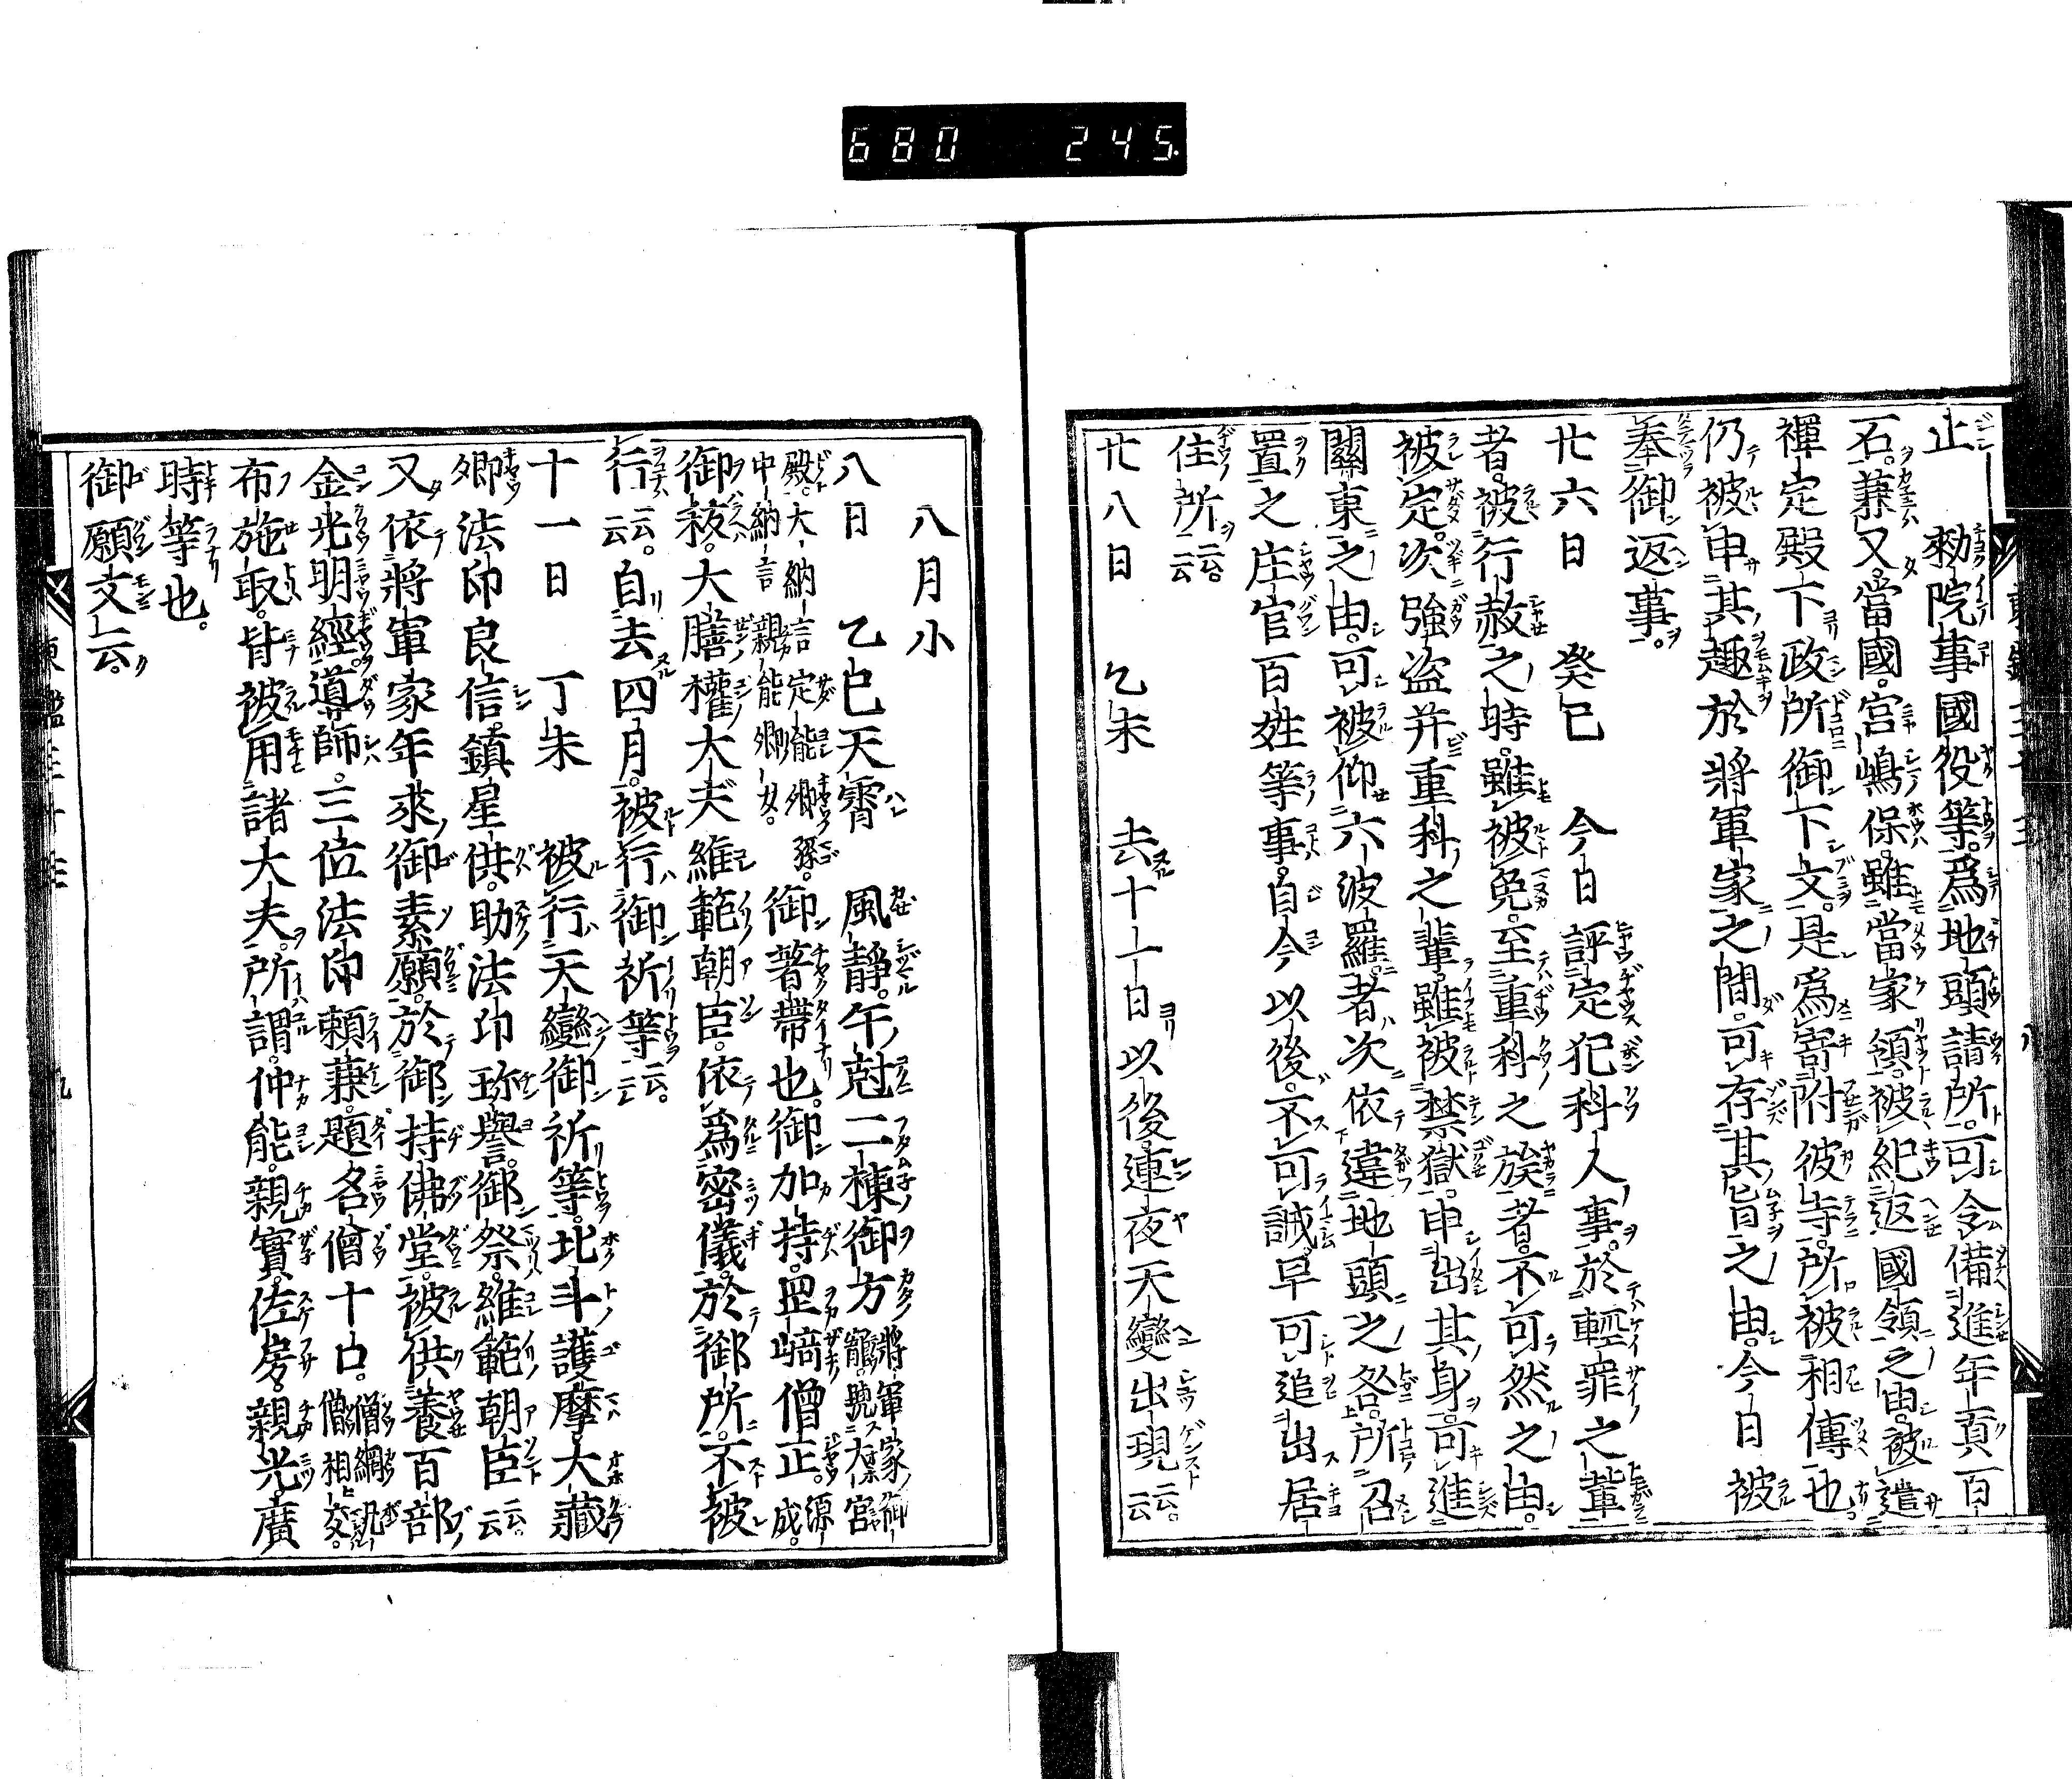 680 245
止　勑院事國役等。爲地頭請所。可令備進年貢百
石。兼又當國。宮嶋保。雖當家領。被紀返國領之由。被遣
禪定殿下政所御下文。是爲寄附彼寺。所被相傳也。
仍被申其趣於將軍家之間。可存其旨之由。今日被
奉御返事。
廿六日　癸巳　今日評定犯科人事。於輕罪之輩
者。被行赦之時。雖被免。至重科之族者。不可然之由。
被定。次強盗并重科之輩。雖被禁獄。申出其身。可進
關東之由。可被仰六波羅者。次依違地頭之咎。所召
置之庄官百姓等事。自今以後。不可誡。早可追出居
住所云云。
廿八日　乙未　去十一日以後連夜天變出現云云。
八月小
八日　乙巳天霽　風靜。午尅二棟御方將軍家御寵。號大宮
殿。大納言定能卿孫。中納言親能卿女。御著帶也。御加持。岡崎僧正。成源
御祓。大膳權大夫維範朝臣。依爲密儀。於御所。不被
行云云。自去四月。被行御祈等云云。
十一日　丁未　被行天變御祈等。北斗護摩大藏
卿法印良信。鎮星供。助法印珎譽。御祭。維範朝臣云云。
又依將軍家年來御素願。於御持佛堂。被供養百部
金光明經。導師。三位法印頼兼。題名僧十口。僧綱凡僧相交。
布施取。皆被用諸大夫。所謂。仲能。親實。佐房。親光。廣
時等也。
御願文云。